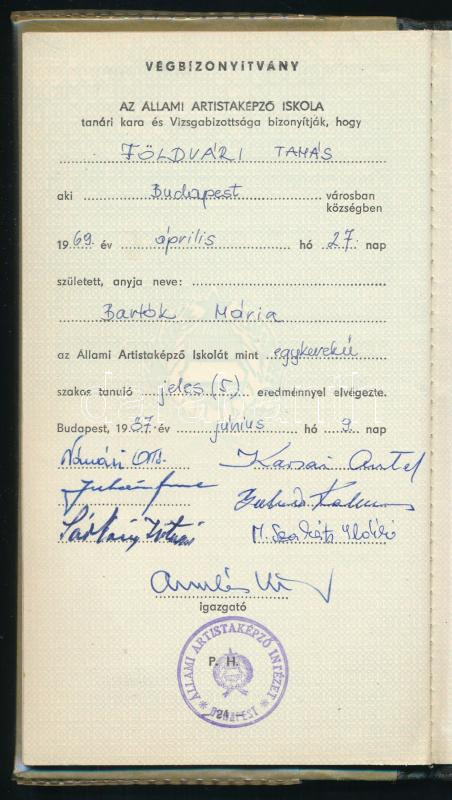 VÉGBIZONYÍTVÁNY
AZ ÁLLAMI ARTISTAKÉPZŐ ISKOLA
tanári kara és Vizsgabizottsága bizonyítják, hogy
FÖLDVÁRI TAMÁS
aki Budapest városban
községben
1969. év április hó 27. nap
született, anyja neve:
Bartók Mária
az Állami Artistaképző Iskolát mint egykerekű
szakos tanuló jeles (5) eredménnyel elvégezte.
Budapest, 1987. év június hó 9. nap
Karsai Antal
Sárkány István
M. Szakáts Ildikó
igazgató
P. H.
* ÁLLAMI ARTISTAKÉPZŐ INTÉZET *
BUDAPEST